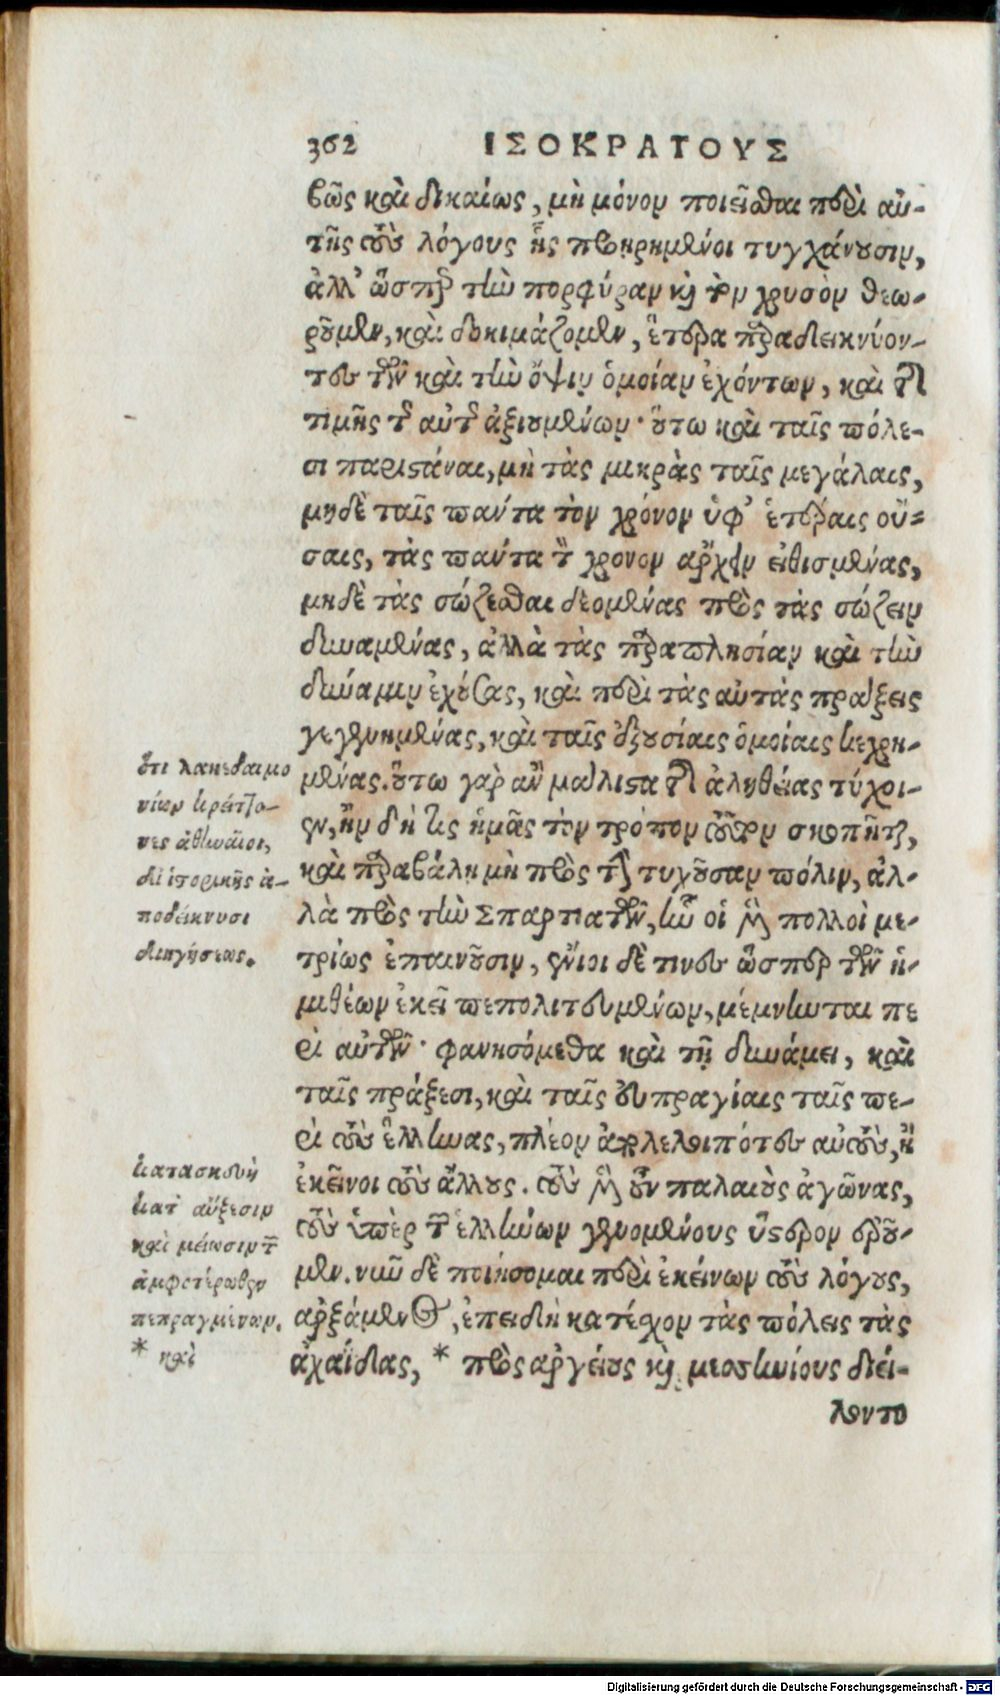 362 ΙΣΟΚΡΑΤΟΥΣ
βῶς καὶ δικαίως, μὴ μόνον ποιεῖσθαι περὶ αὐ-
τῆς τοὺς λόγους ἧς προῃρημένοι τυγχάνουσιν,
ἀλλ' ὥσπερ τὴν πορφύραν καὶ τὸν χρυσὸν θεω-
ροῦμεν, καὶ δοκιμάζομεν, ἕτερα παραδεικνύον-
τες τῶν καὶ τὴν ὄψιν ὁμοίαν ἐχόντων, καὶ τῆς
τιμῆς τῆς αὐτῆς ἀξιουμένων· οὕτω καὶ ταῖς πόλε-
σι παριστάναι, μὴ τὰς μικρὰς ταῖς μεγάλαις,
μηδὲ ταῖς πάντα τὸν χρόνον ὑφ' ἑτέραις οὔ-
σαις, τὰς πάντα τὸν χρόνον ἄρχειν εἰθισμένας,
μηδὲ τὰς σώζεσθαι δεομένας πρὸς τὰς σώζειν
δυναμένας, ἀλλὰ τὰς παραπλησίαν καὶ τὴν
δύναμιν ἐχούσας, καὶ περὶ τὰς αὐτὰς πράξεις
γεγενημένας, καὶ ταῖς ἐξουσίαις ὁμοίαις κεχρη-
μένας. οὕτω γὰρ ἂν μάλιστα τῆς ἀληθείας τύχοι-
εν, ἢν δή τις ἡμᾶς τὸν τρόπον τοῦτον σκοπῆται,
καὶ παραβάλῃ μὴ πρὸς τὴν τυχοῦσαν πόλιν, ἀλ-
λὰ πρὸς τὴν Σπαρτιατῶν, ἣν οἱ μὲν πολλοὶ με-
τρίως ἐπαινοῦσιν, ἔνιοι δέ τινες ὥσπερ τῶν ἡ-
μιθέων ἐκεῖ πεπολιτευμένων, μέμνηνται πε
ρὶ αὐτῶν· φανησόμεθα καὶ τῇ δυνάμει, καὶ
ταῖς πράξεσι, καὶ ταῖς εὐπραγίαις ταῖς πε-
ρὶ τοὺς ἕλληνας, πλέον ἀπολελοιπότες αὐτοὺς, ἢ
ἐκεῖνοι τοὺς ἄλλους. τοὺς μὲν οὖν παλαιοὺς ἀγῶνας,
τοὺς ὑπὲρ τῶν ἑλλήνων γενομένους ὕστερον ἐροῦ-
μεν. νῦν δὲ ποιήσομαι περὶ ἐκείνων τοὺς λόγους,
ἀρξάμενος, ἐπειδὴ κατέσχον τὰς πόλεις τὰς
ἀχαΐδας, * πρὸς ἀργείους καὶ μεσσηνίους διεί-
λοντο
ὅτι λακεδαιμο
νίων κρείττο-
νες ἀθηναῖοι,
δι ἱστορικῆς ἀ-
ποδείκνυσι
διηγήσεως.
κατασκευὴ
κατ' αὔξησιν
καὶ μείωσιν τῶν
ἀμφοτέρωθεν
πεπραγμένων.
* καὶ
Digitalisierung gefördert durch die Deutsche Forschungsgemeinschaft - DFG